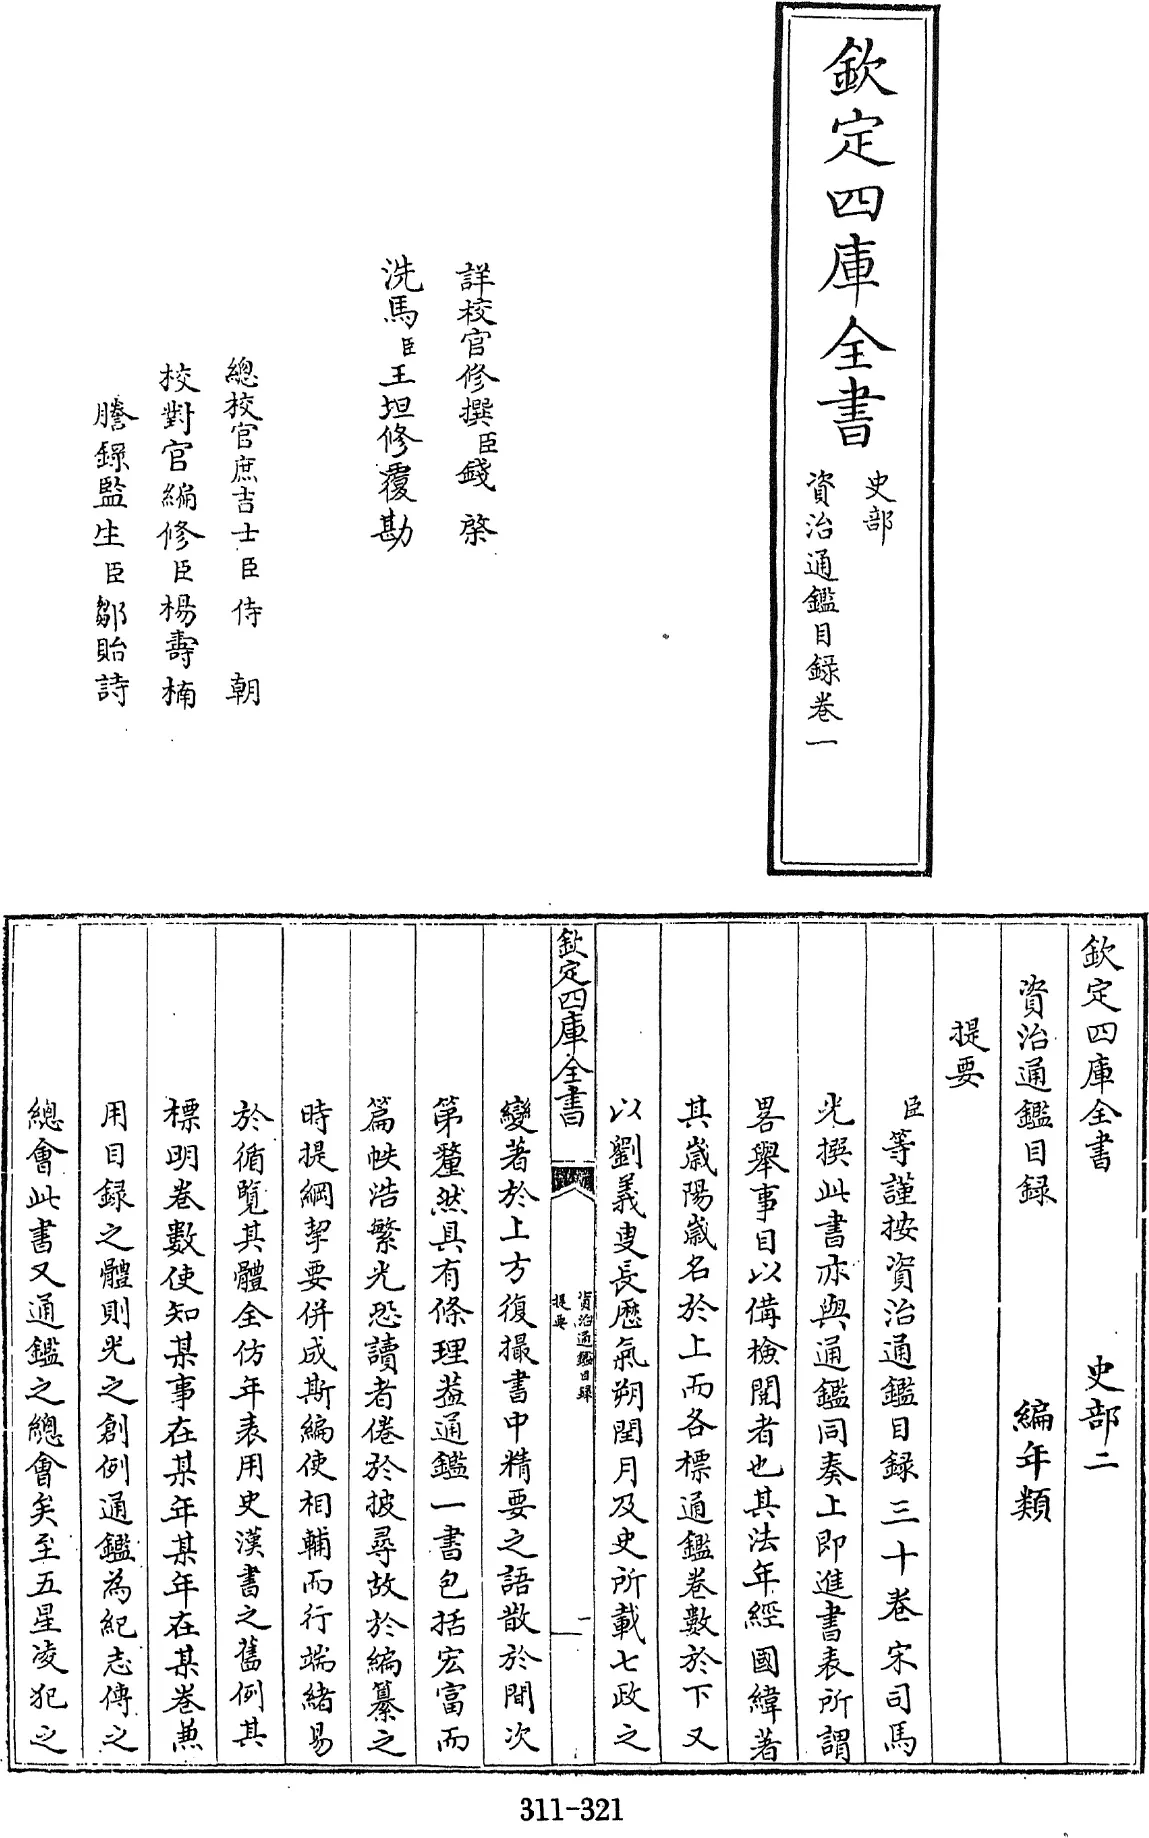 欽定四庫全書
史部
資治通鑑目錄卷一
詳校官修撰臣錢棨
洗馬臣王坦修覆勘
總校官庶吉士臣侍朝
校對官編修臣楊壽楠
謄錄監生臣鄒貽詩
欽定四庫全書 史部二
資治通鑑目錄 編年類
提要
臣等謹按資治通鑑目錄三十卷宋司馬
光撰此書亦與通鑑同奏上即進書表所謂
畧舉事目以備檢閱者也其法年經國緯著
其歲陽歲名於上而各標通鑑卷數於下又
以劉義叟長歷氣朔閏月及史所載七政之
欽定四庫全書
資治通鑑目錄
提要
一
變著於上方復撮書中精要之語散於間次
第釐然具有條理葢通鑑一書包括宏富而
篇帙浩繁光恐讀者倦於披尋故於編纂之
時提綱挈要併成斯編使相輔而行端緒易
於循覽其體全仿年表用史漢書之舊例其
標明卷數使知某事在某年某年在某卷兼
用目錄之體則光之創例通鑑為紀志傳之
總會此書又通鑑之總會矣至五星凌犯之
311-321